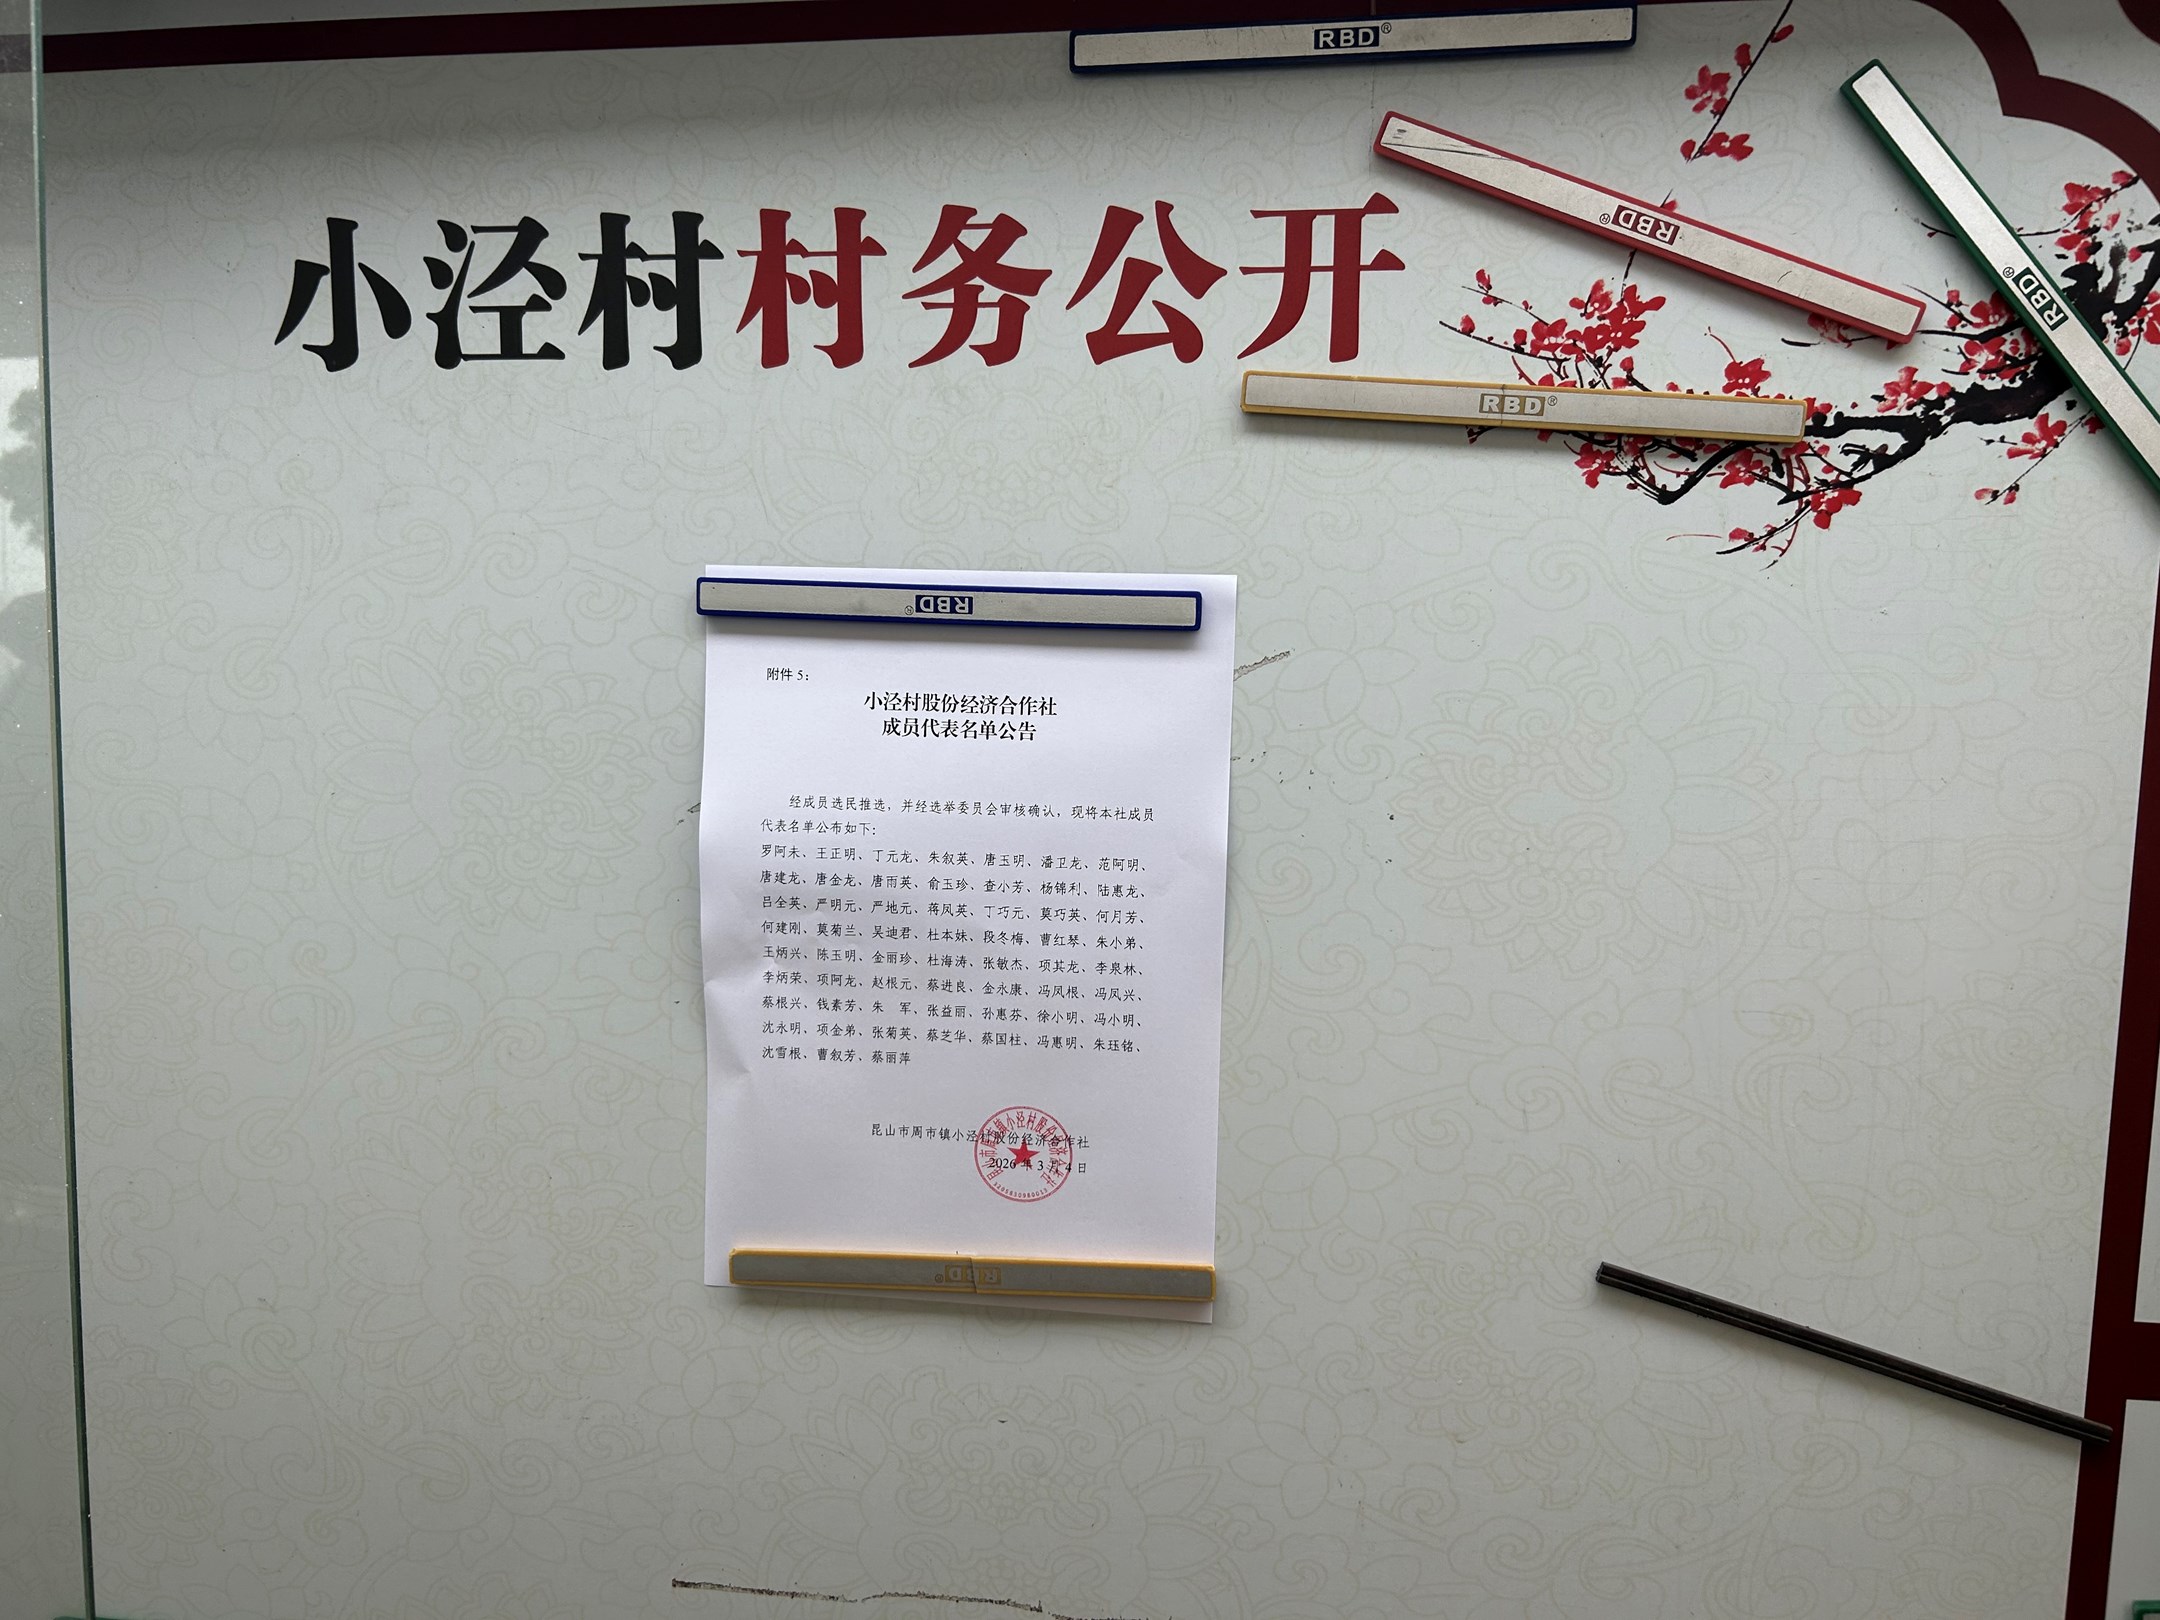 RBD®
RBD®
RBD®
小泾村村务公开
RBD®
RBD®
附件 5：
小泾村股份经济合作社
成员代表名单公告
经成员选民推选，并经选举委员会审核确认，现将本社成员
代表名单公布如下：
罗阿未、王正明、丁元龙、朱叙英、唐玉明、潘卫龙、范阿明、
唐建龙、唐金龙、唐雨英、俞玉珍、查小芳、杨锦利、陆惠龙、
吕全英、严明元、严地元、蒋凤英、丁巧元、莫巧英、何月芳、
何建刚、莫菊兰、吴迪君、杜本妹、段冬梅、曹红琴、朱小弟、
王炳兴、陈玉明、金丽珍、杜海涛、张敏杰、项其龙、李泉林、
李炳荣、项阿龙、赵根元、蔡进良、金永康、冯凤根、冯凤兴、
蔡根兴、钱素芳、朱　军、张益丽、孙惠芬、徐小明、冯小明、
沈永明、项金弟、张菊英、蔡芝华、蔡国柱、冯惠明、朱珏铭、
沈雪根、曹叙芳、蔡丽萍
昆山市周市镇小泾村股份经济合作社
2026 年 3 月 4 日
昆山市周市镇小泾村股份经济合作社
RBD®